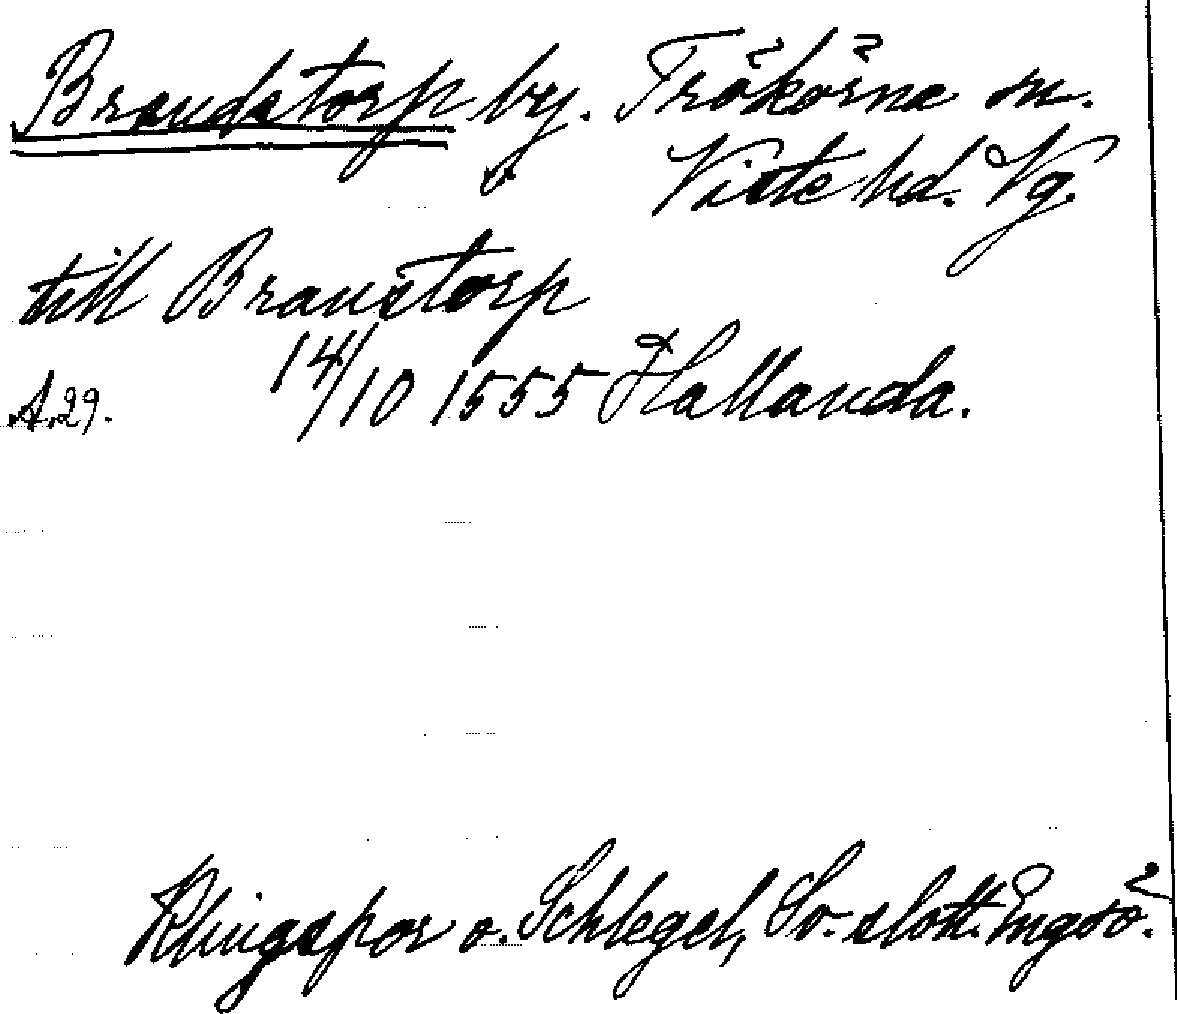 Brandstorp by. Trökörna sn.
Viste hd. Vg.
till Branstorp
14/10 1555 Hallanda.
A.29.
Klingspor o. Schlegel, Sv. slott. Engsö.